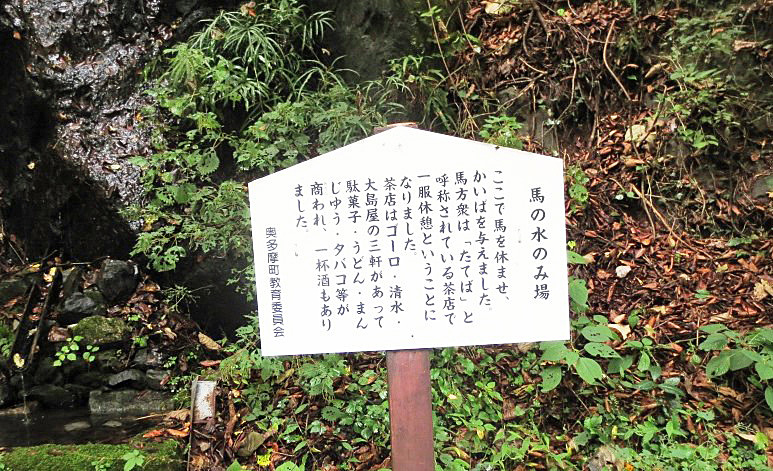 馬の水のみ場
ここで馬を休ませ、
かいばを与えました。
馬方衆は「たてば」と
呼称されている茶店で
一服休憩ということに
なりました。
茶店はゴーロ・清水・
大島屋の三軒があって
駄菓子・うどん・まん
じゆう・タバコ等が
商われ、一杯酒もあり
ました。
奥多摩町教育委員会